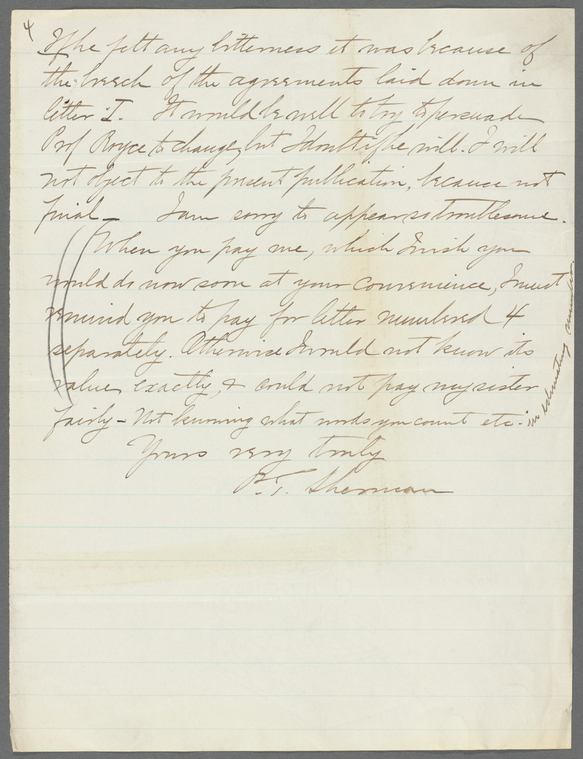 4
If he felt any bitterness it was because of
the breech of the agreements laid down in
letter I. It would be well to try to persuade
Prof Royce to change, but I doubt if he will. I will
not object to the present publication, because not
final — I am sorry to appear so troublesome.
When you pay me, which I wish you
would do now soon at your convenience, I must
remind you to pay for letter numbered 4
separately. Otherwise I would not know its
value exactly, & could not pay my sister
fairly — Not knowing what words you count etc. in
Yours very truly
P.T. Sherman